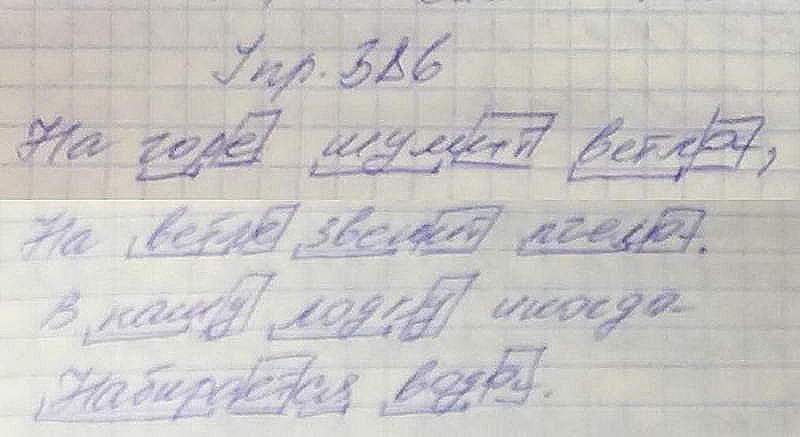 Упр. 386
На горе шумит ветла,
На ветле звенит пчела.
В нашу лодку иногда
Набирается вода.